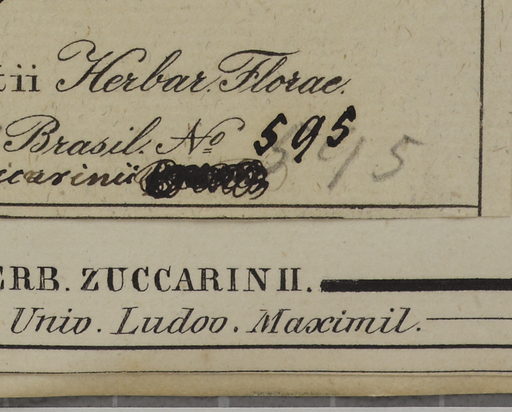 tii Herbar. Florae.
Brasil. No 595 595
ccarinii
ERB. ZUCCARINII.
Univ. Ludov. Maximil.